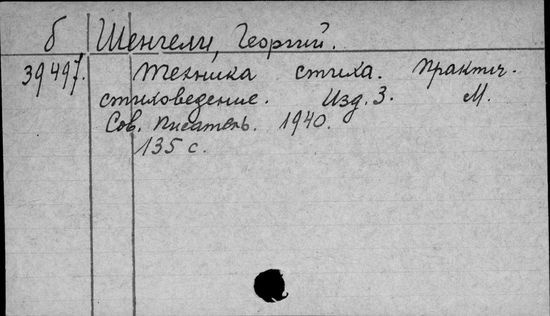 б Шенгели, Георгий.
39497. Техника стиха. Практич.
стиховедение. Изд. 3. М.
Сов. писатель. 1940.
135 с.